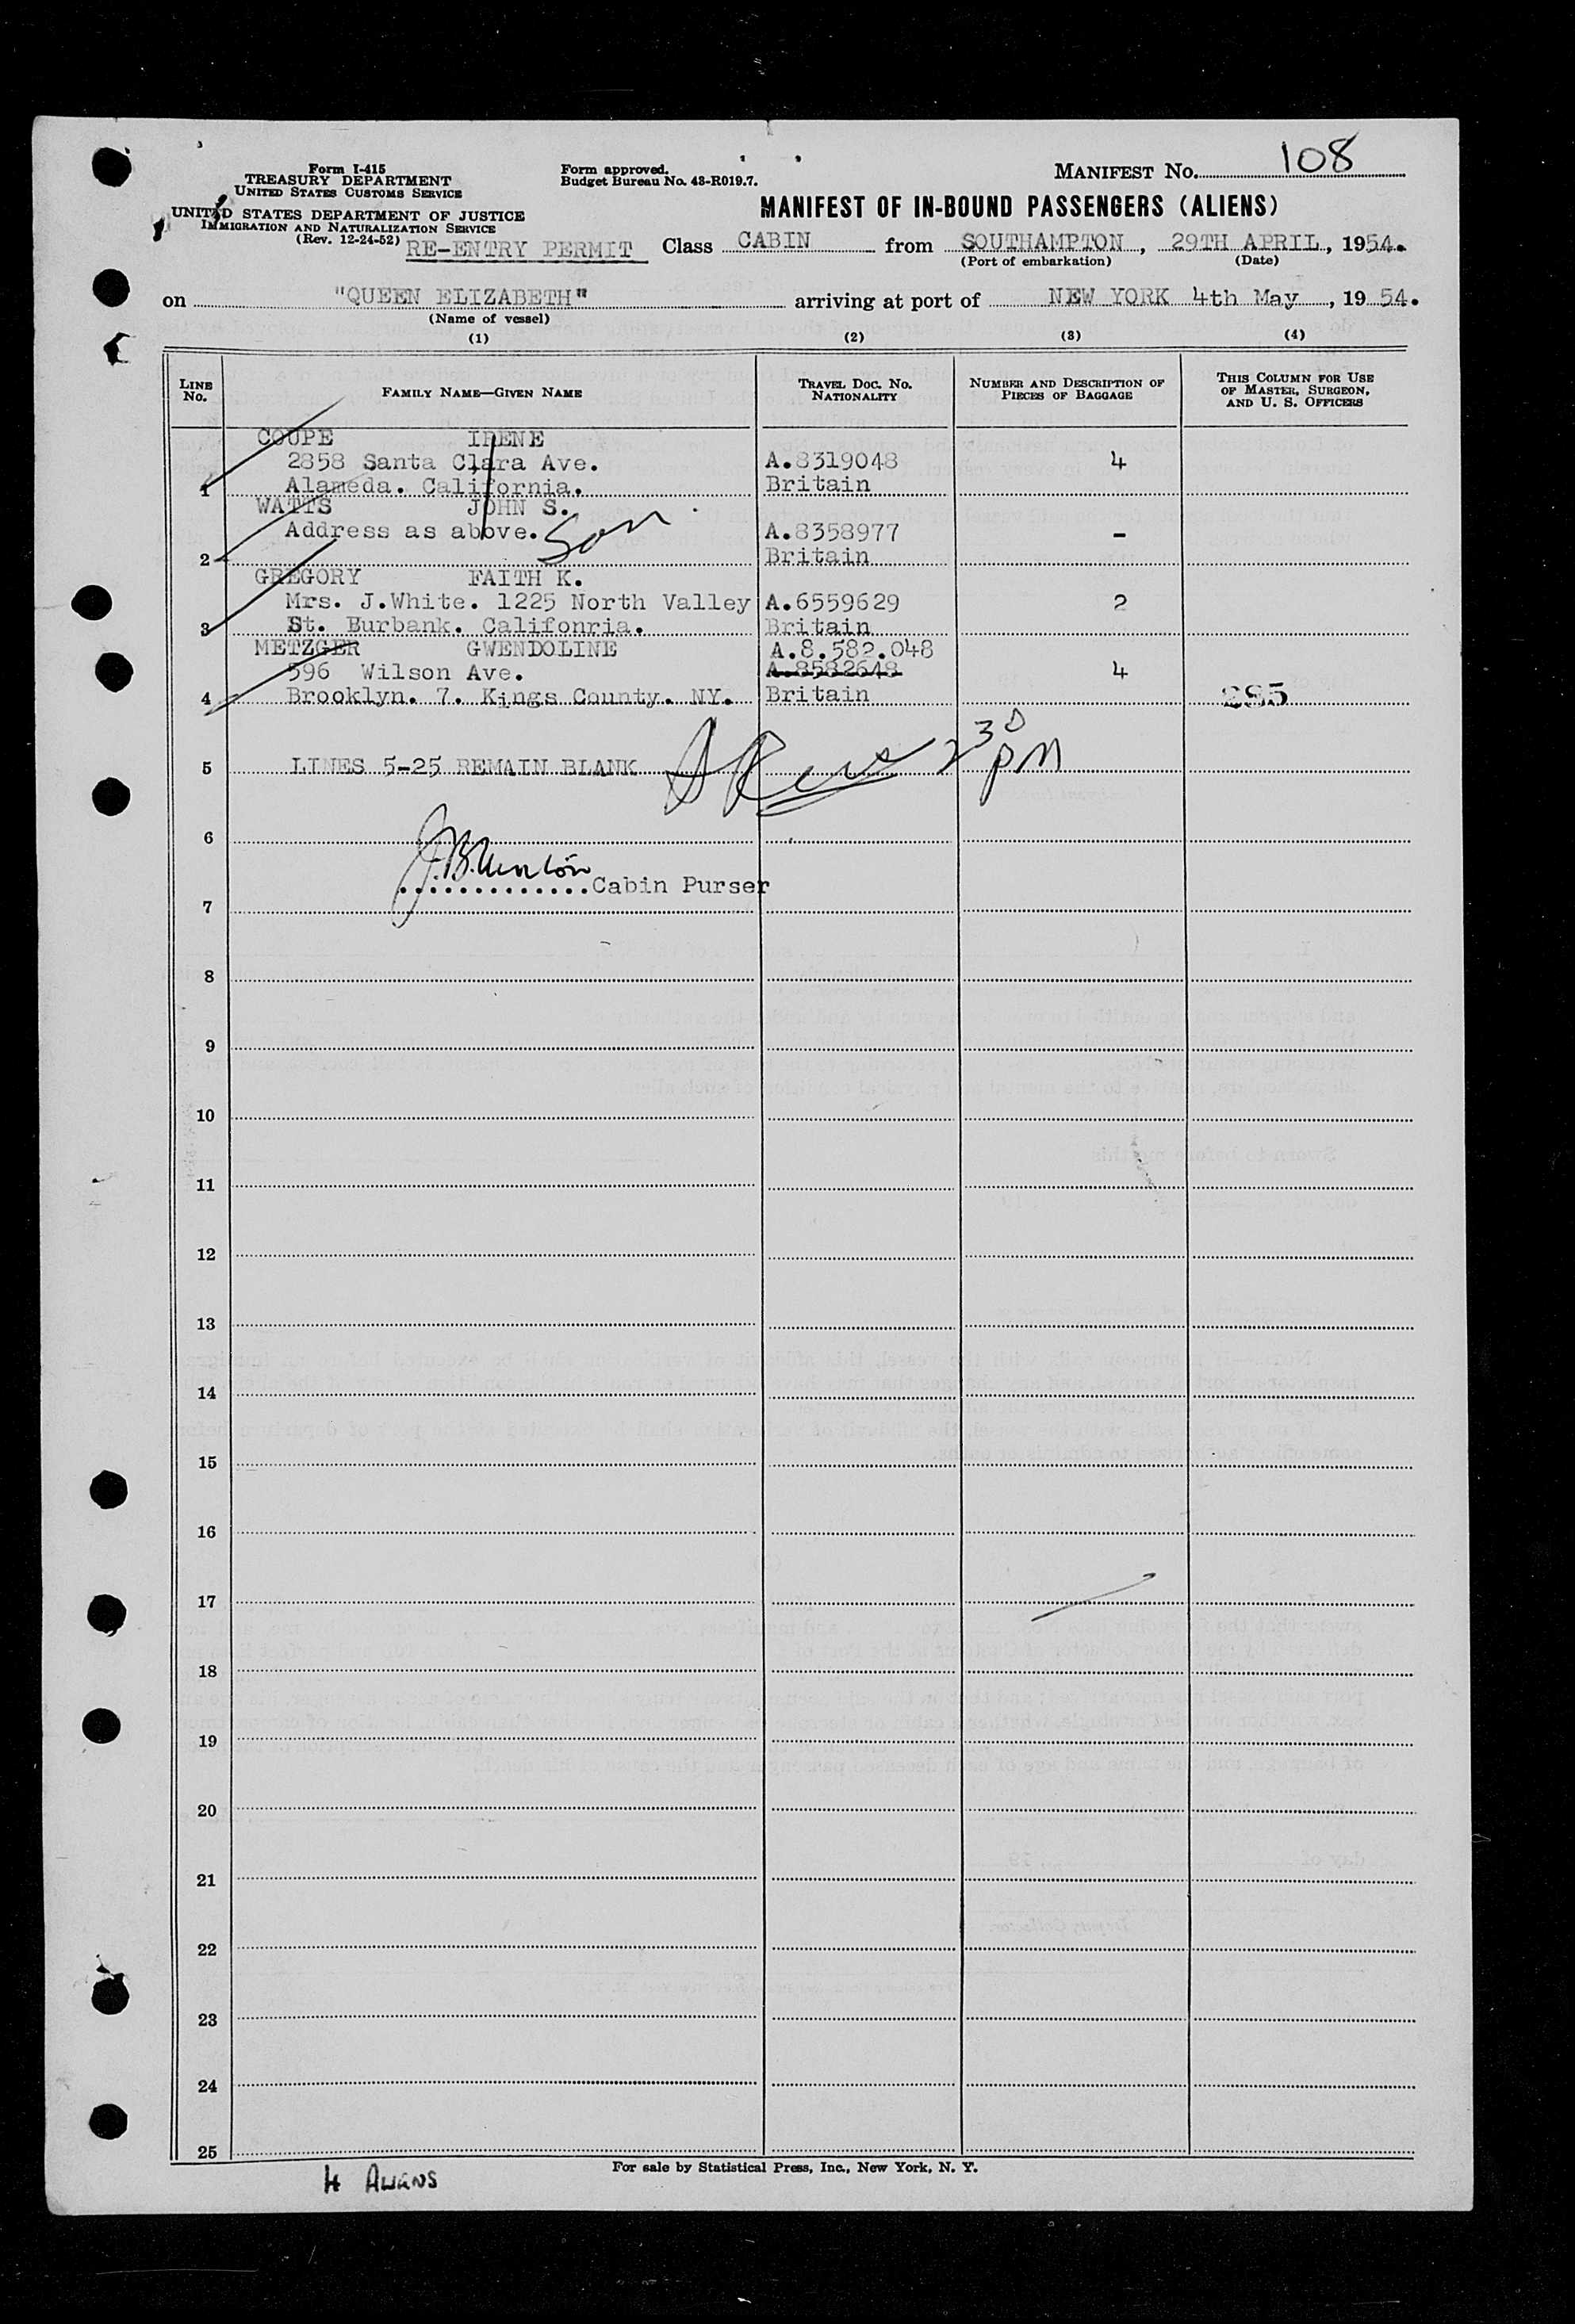 MANIFEST No. 108
Form I-415
TREASURY DEPARTMENT
UNITED STATES CUSTOMS SERVICE
Form approved.
Budget Bureau No. 43-R019.7.
UNITED STATES DEPARTMENT OF JUSTICE
IMMIGRATION AND NATURALIZATION SERVICE
(Rev. 12-24-52)
MANIFEST OF IN-BOUND PASSENGERS (ALIENS)
RE-ENTRY PERMIT Class CABIN from SOUTHAMPTON, 29TH APRIL, 1954.
(Port of embarkation) (Date)
on "QUEEN ELIZABETH" arriving at port of NEW YORK 4th May, 19 54.
(Name of vessel)
(1) (2) (3) (4)
LINE No. FAMILY NAME—GIVEN NAME TRAVEL DOC. NO. NATIONALITY NUMBER AND DESCRIPTION OF PIECES OF BAGGAGE THIS COLUMN FOR USE OF MASTER, SURGEON, AND U. S. OFFICERS
COUPE IRENE
2858 Santa Clara Ave. A.8319048 4
1 Alameda. California. Britain
WATTS JOHN S.
Address as above. Son. A.8358977 -
2 Britain
GREGORY FAITH K.
Mrs. J.White. 1225 North Valley A.6559629 2
3 St. Burbank. Califonria. Britain
METZGER GWENDOLINE A.8.582.048
596 Wilson Ave. A.8582648 4
4 Brooklyn. 7. Kings County. NY. Britain 295
5 LINES 5-25 REMAIN BLANK 2 30 PM
6
.............Cabin Purser
7
8
9
10
11
12
13
14
15
16
17
18
19
20
21
22
23
24
25
For sale by Statistical Press, Inc., New York, N. Y.
4 ALIENS